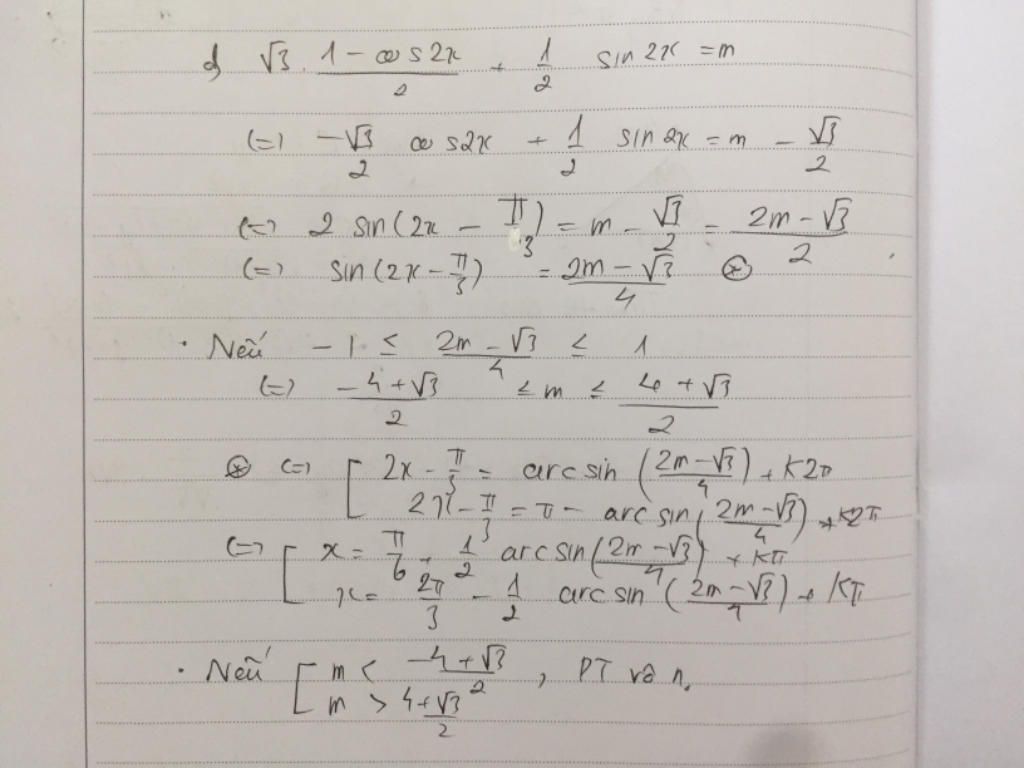 d) √3 . (1 - cos2x)/2 + 1/2 sin 2x = m
(=) -√3/2 cos2x + 1/2 sin 2x = m - √3/2
(=) 2 sin(2x - π/3) = m - √3/2 = (2m - √3)/2
(=) sin(2x - π/3) = (2m - √3)/4 ⊛
• Nếu -1 ≤ (2m - √3)/4 ≤ 1
(=) (-4 + √3)/2 ≤ m ≤ (4 + √3)/2
⊛ (=) [ 2x - π/3 = arcsin ((2m - √3)/4) + k2π
2x - π/3 = π - arcsin ((2m - √3)/4) + k2π
(=) [ x = π/6 + 1/2 arcsin((2m - √3)/4) + kπ
x = 2π/3 - 1/2 arcsin ((2m - √3)/4) + kπ
• Nếu [ m < (-4 + √3)/2 , PT vô n.
m > (4 + √3)/2